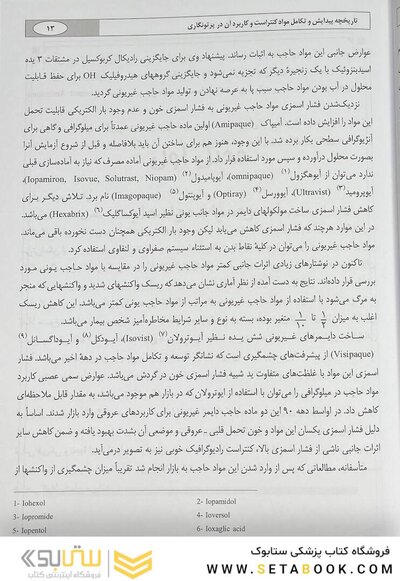 تاریخچه پیدایش و تکامل مواد کنتراست و کاربرد آن در پرتونگاری
۱۳
عوارض جانبی این مواد حاجب به اثبات رساند. پیشنهاد وی برای جایگزینی رادیکال کربوکسیل در مشتقات ۳ یده
اسیدبنزوئیک با یک زنجیرهٔ دیگر که تجزیه نمی‌شود و جایگزینی گروههای هیدروفیلیک OH برای حفظ قابلیت
محلول در آب بودن مواد حاجب سبب پا به عرصه نهادن و تولید مواد حاجب غیریونی گردید.
نزدیک‌شدن فشار اسمزی مواد حاجب غیریونی به فشار اسمزی خون و عدم وجود بار الکتریکی قابلیت تحمل
این مواد را افزایش داده است. آمیپاک (Amipaque) اولین ماده حاجب غیریونی عمدتاً برای میلوگرافی و گاهی برای
آنژیوگرافی سطحی بکار برده شد. با این وجود، هنوز هم برای ساختن آن باید بلافاصله و قبل از شروع آزمایش آنرا
بصورت محلول درآورده و سپس مورد استفاده قرار داد. از مواد حاجب غیریونی آماده مصرف که نیاز به آماده‌سازی قبلی
ندارد می‌توان از آیوهگزول(۱) (omnipaque)، آیوپامیدول(۲) (Iopamiron, Isovue, Solutrast, Niopam)،
آیوپرومید(۳) (Ultravist)، آیوورسل(۴) (Optiray) و آیوپنتول(۵) (Imagopaque) نام برد. تلاش دیگر برای
کاهش فشار اسمزی ساخت مولکولهای دایمر در مواد حاجب یونی نظیر اسید آیوکساگلیک(۶) (Hexabrix) می‌باشد.
در این موارد هرچند که فشار اسمزی کاهش می‌یابد لیکن وجود بار الکتریکی همچنان دست نخورده باقی می‌ماند.
مواد حاجب غیریونی را می‌توان در کلیهٔ نقاط بدن به استثناء سیستم صفراوی و لنفاوی استفاده کرد.
تاکنون در نوشتارهای زیادی اثرات جانبی کمتر مواد حاجب غیریونی را در مقایسه با مواد حاجب یونی مورد
بررسی قرار داده‌اند. نتایج به دست آمده از نظر آماری نشان می‌دهد که ریسک واکنشهای شدید و واکنشهایی که منجر
به مرگ می‌شود با استفاده از مواد حاجب غیریونی به مراتب از مواد حاجب یونی کمتر می‌باشد. این کاهش ریسک
اغلب به میزان تا ۱/۱۰ متغیر بوده، بسته به نوع و سایر شرایط مخاطره‌آمیز شخص بیمار می‌باشد.
ساخت دایمرهای غیریونی شش یده نظیر آیوترولان(۷) (Isovist)، آیودکل(۸) و آیوداگسانل(۹)
(Visipaque) از پیشرفت‌های چشمگیری است که نشانگر توسعه و تکامل مواد حاجب در دههٔ اخیر می‌باشد. فشار
اسمزی این مواد با غلظت‌های متفاوت ید شبیه فشار اسمزی خون در گردش می‌باشد. عوارض سمی عصبی کاربرد
مواد حاجب در میلوگرافی را می‌توان با استفاده از آیوترولان که در بازار هم موجود می‌باشد، به مقدار قابل ملاحظه‌ای
کاهش داد. در اواسط دهه ۹۰ این دو ماده حاجب دایمر غیریونی برای کاربردهای عروقی وارد بازار شدند. اساساً به
دلیل فشار اسمزی یکسان این مواد و خون تحمل قلبی ـ عروقی و موضعی آن بشدت بهبود یافته و ضمن کاهش سایر
اثرات جانبی ناشی از فشار اسمزی بالا، کنتراست رادیوگرافیک خوبی نیز به تصویر درمی‌آید.
متأسفانه، مطالعاتی که پس از وارد شدن این مواد حاجب به بازار انجام شد تقریباً میزان چشمگیری از واکنشها از
1- Iohexol
2- Iopamidol
3- Iopromide
4- Ioversol
5- Iopentol
6- Ioxaglic acid
ستابوک
فروشگاه اینترنتی کتاب
فروشگاه کتاب پزشکی ستابوک
WWW.SETABOOK.COM